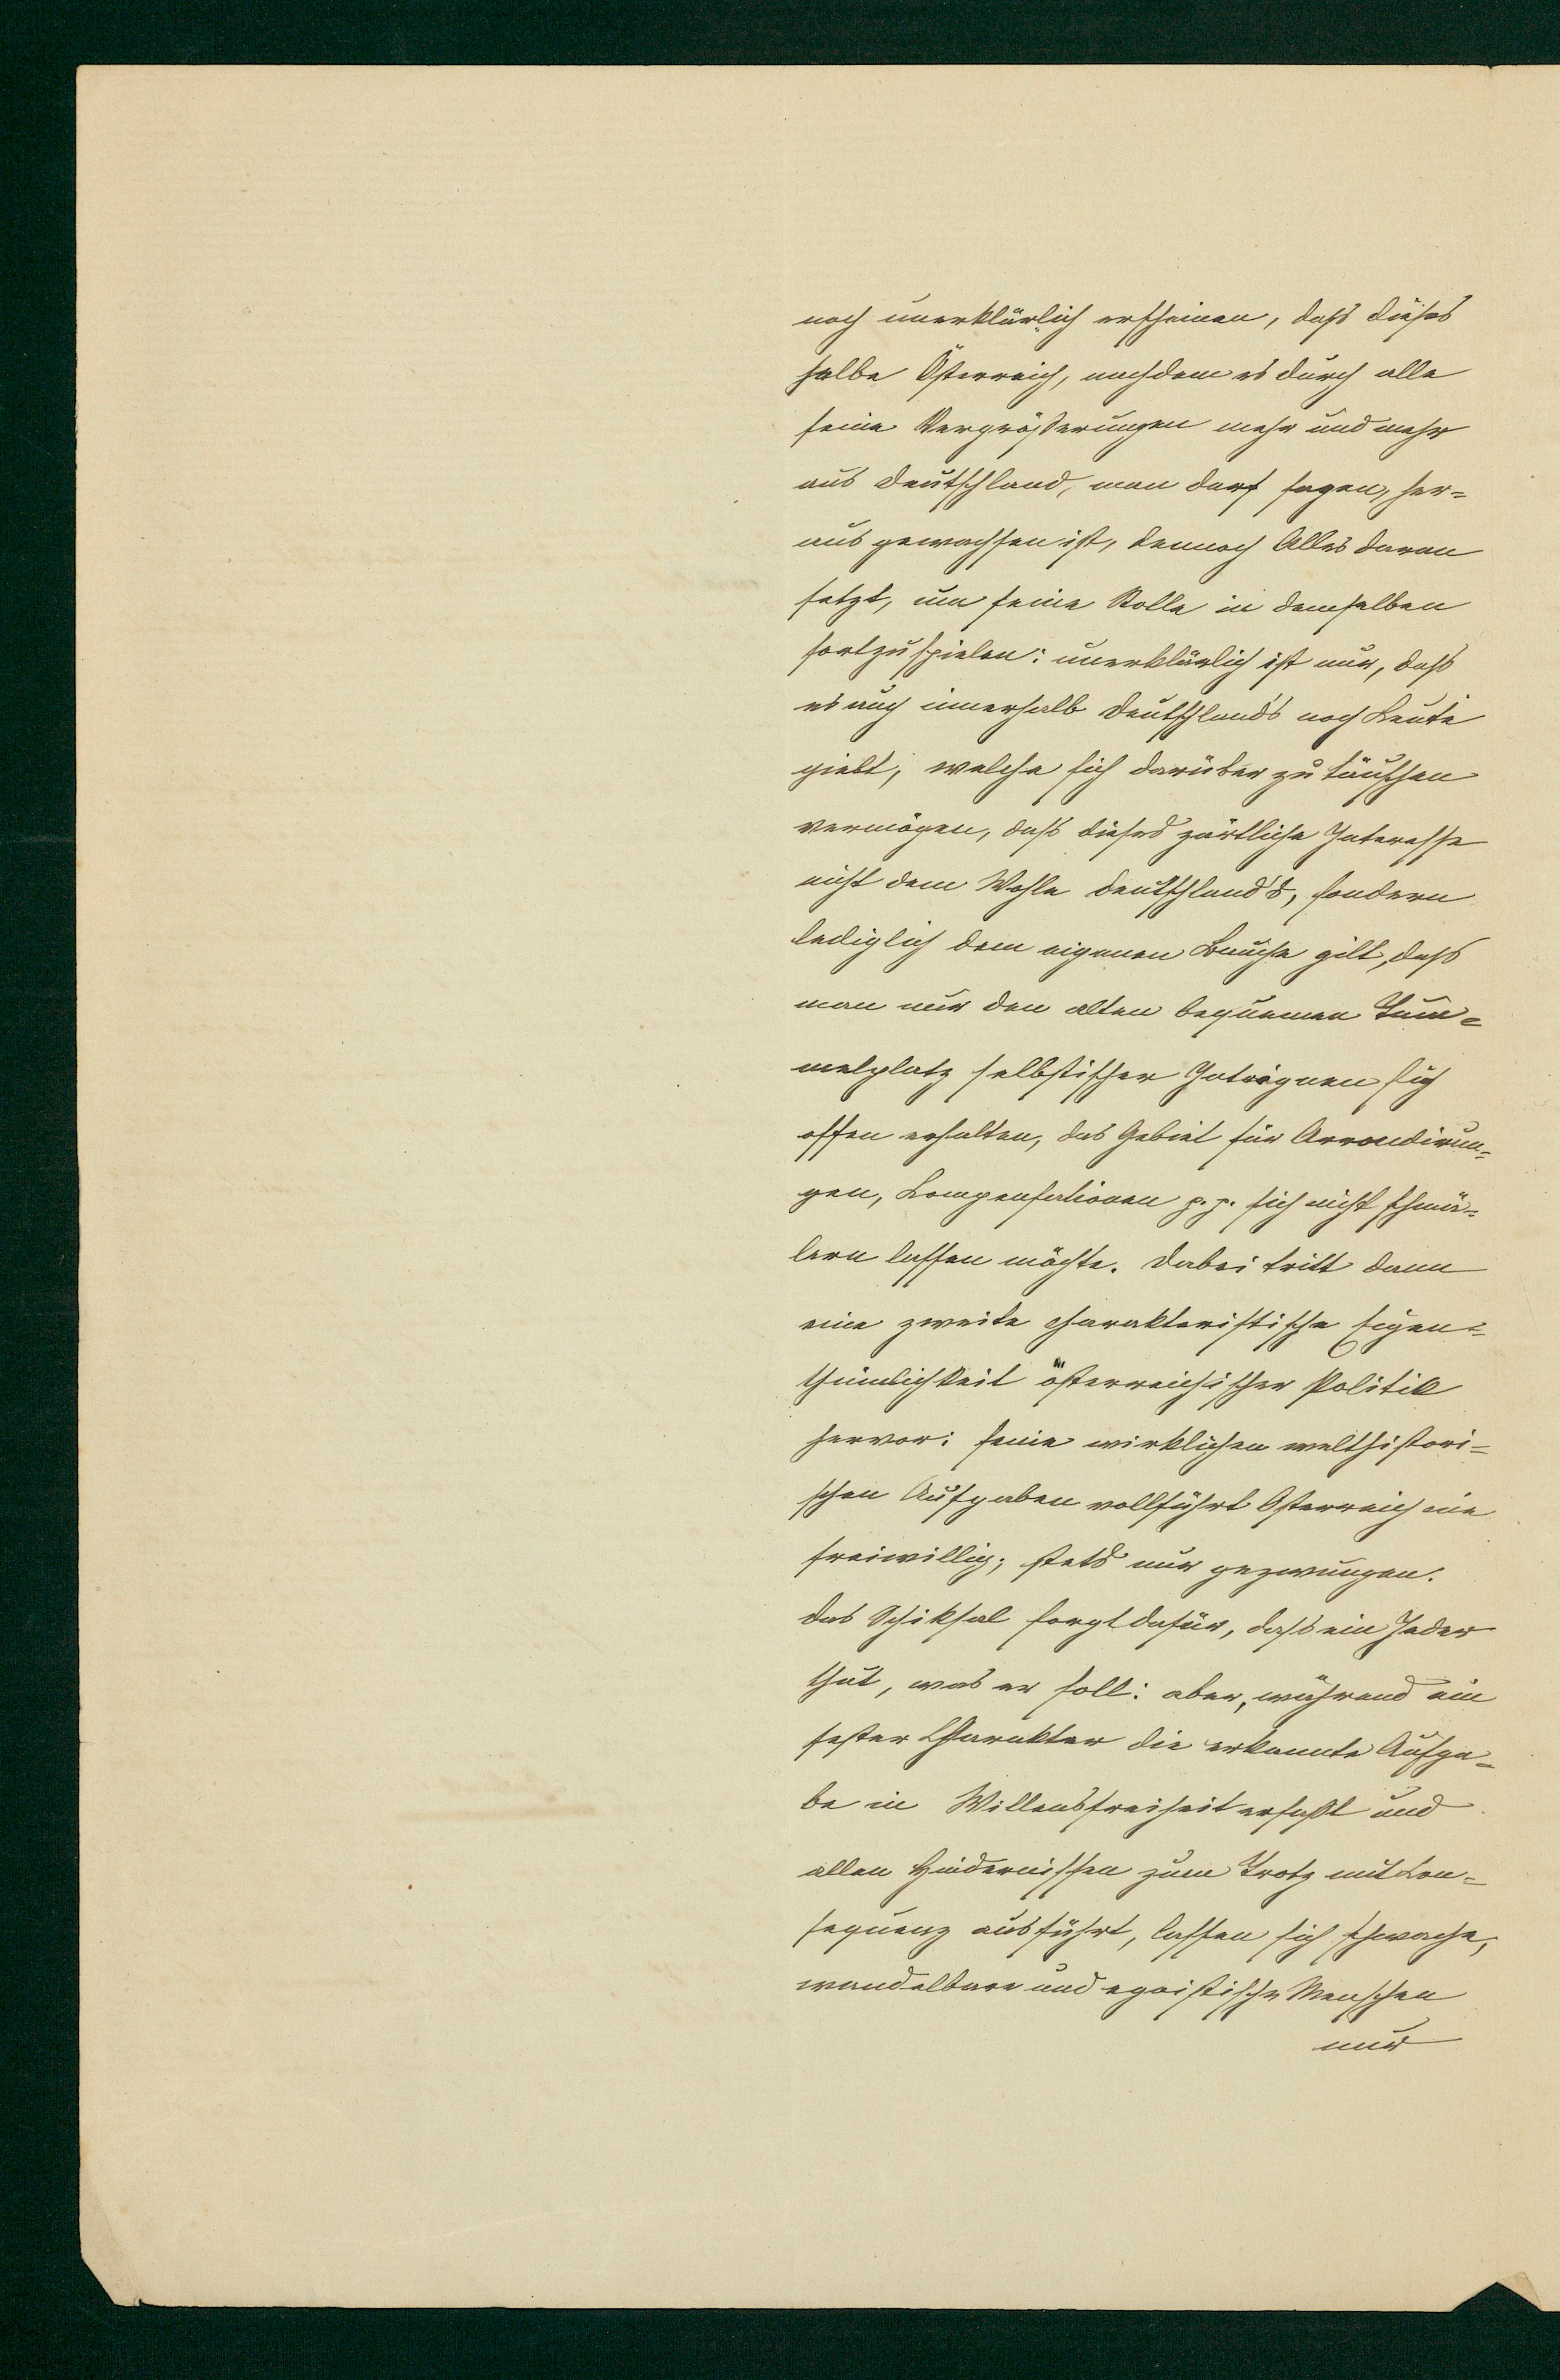 noch unerklärlich erscheinen, daß dieses
selbe Österreich, nachdem es durch alle
seine Vergrößerungen mehr und mehr
aus Deutschland, man darf sagen, her=
aus gewachsen ist, dennoch Alles daran
setzt, um seine Rolle in demselben
fortzuspielen: unerklärlich ist nur, daß
es auch innerhalb Deutschland's noch Leute
giebt, welche sich darüber zu täuschen
vermögen, daß dieses zärtliche Interesse
nicht dem Wohle Deutschland's, sondern
lediglich dem eigenen Bauche gilt, daß
man nur den alten bequemen Tum=
melplatz selbstischer Intriguen sich
offen erhalten, das Gebiet für Arrondirun=
gen, Compensationen p. p. sich nicht schmä=
lern lassen möchte. Dabei tritt dann
eine zweite charakteristische Eigen=
thümlichkeit österreichischer Politik
hervor: seine wirklichen welthistori=
schen Aufgaben vollführt Österreich nie
freiwillig; stets nur gezwungen.
Das Schiksal sorgt dafür, daß ein Jeder
thut, was er soll: aber, während ein
fester Charakter die erkannte Aufga=
be in Willensfreiheit erfaßt und
allen Hindernissen zum Trotz mit Con=
sequenz ausführt, lassen sich schwache,
wandelbare und egoistische Menschen
nur